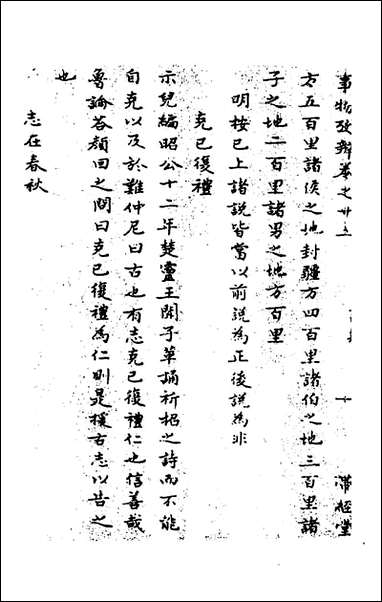 事物攷辨卷之廿三 十 帶經堂
方五百里諸侯之地封疆方四百里諸伯之地三百里諸
子之地二百里諸男之地方百里
明按已上諸說皆當以前說為正後說為非
克已復禮
示兒編昭公十二年楚靈王聞子革誦祈招之詩而不能
自克以及於難仲尼曰古也有志克已復禮仁也信善哉
魯論荅顏囬之問曰克已復禮為仁則是樸古志以告之
也
志在春秋